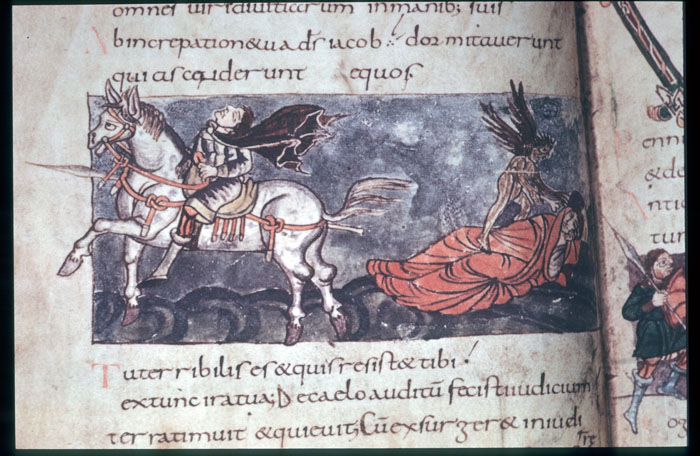 omnes uiri diuitiarum in manib; suis
Ab increpatione tua ds iacob : dormitauerunt
qui ascenderunt equos
Tu terribilis es & quis resist& tibi
extunc ira tua; De caelo auditū fecisti iudicium
terra timuit & quieuit; Cū exsurger& in iudi